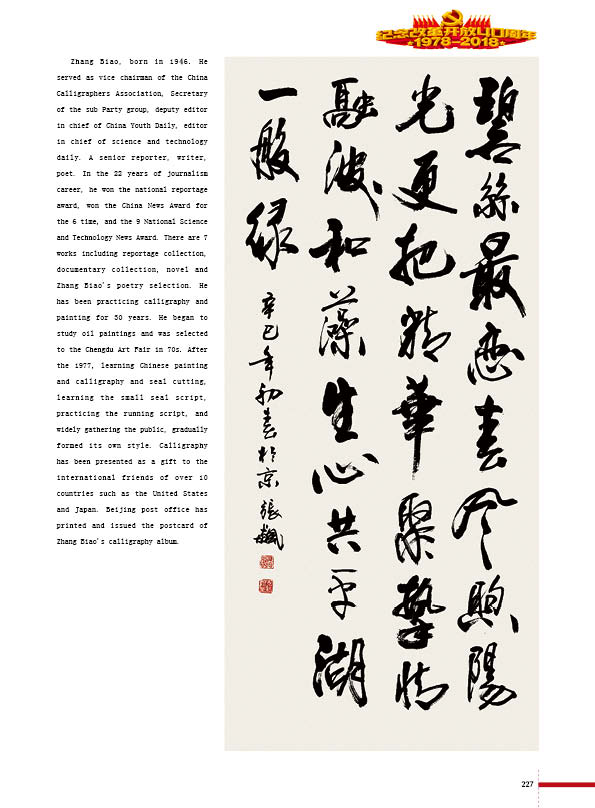 纪念改革开放40周年
★1978-2018★
Zhang Biao, born in 1946. He
served as vice chairman of the China
Calligraphers Association, Secretary
of the sub Party group, deputy editor
in chief of China Youth Daily, editor
in chief of science and technology
daily. A senior reporter, writer,
poet. In the 22 years of journalism
career, he won the national reportage
award, won the China News Award for
the 6 time, and the 9 National Science
and Technology News Award. There are 7
works including reportage collection,
documentary collection, novel and
Zhang Biao's poetry selection. He
has been practicing calligraphy and
painting for 30 years. He began to
study oil paintings and was selected
to the Chengdu Art Fair in 70s. After
the 1977, learning Chinese painting
and calligraphy and seal cutting,
learning the small seal script,
practicing the running script, and
widely gathering the public, gradually
formed its own style. Calligraphy
has been presented as a gift to the
international friends of over 10
countries such as the United States
and Japan. Beijing post office has
printed and issued the postcard of
Zhang Biao's calligraphy album.
碧絲最恋春风煦陽
光更把精華聚摯情
融波和藻生心共平湖
一般绿
辛巳年初春於京張飆
227